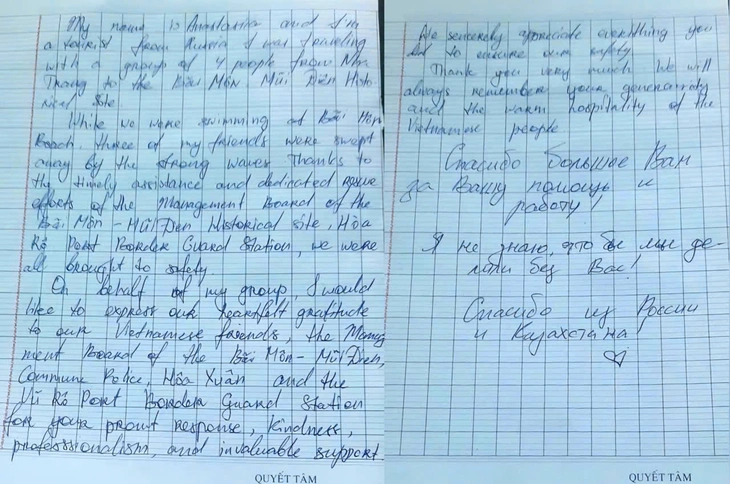 My name is Anastasiia and I'm
a tourist from Russia I was traveling
with a group of 4 people from Nha
Trang to the Bãi Môn Mũi Điện Histo
rical site.
While we were swimming at Bãi Môn
Beach, three of my friends were swept
away by the strong waves Thanks to
the timely assistance and dedicated rescue
efforts of the Management Board of the
Bãi Môn - Mũi Điện Historical site, Hòa
Port Border Guard Station, we were
all brought to safety.
On behalf of my group, I would
like to express our heartfelt gratitude
to our Vietnamese friends, the Manag
ment Board of the Bãi Môn - Mũi Điện,
Commune Police, Hòa Xuân and the
Vũ Rô Port Border Guard Station
for your promt response, kindness,
professionalism, and invaluable support.
QUYẾT TÂM
We sincerely appreciate everything you
did to ensure our safety
Thank you very much We will
always remember your generosity
and the warm hospitality of the
Vietnamese people
Спасибо большое Вам
за Вашу помощь и
работу!
Я не знаю, что бы мы де-
лали без Вас!
Спасибо из России
и Казахстана!
QUYẾT TÂM